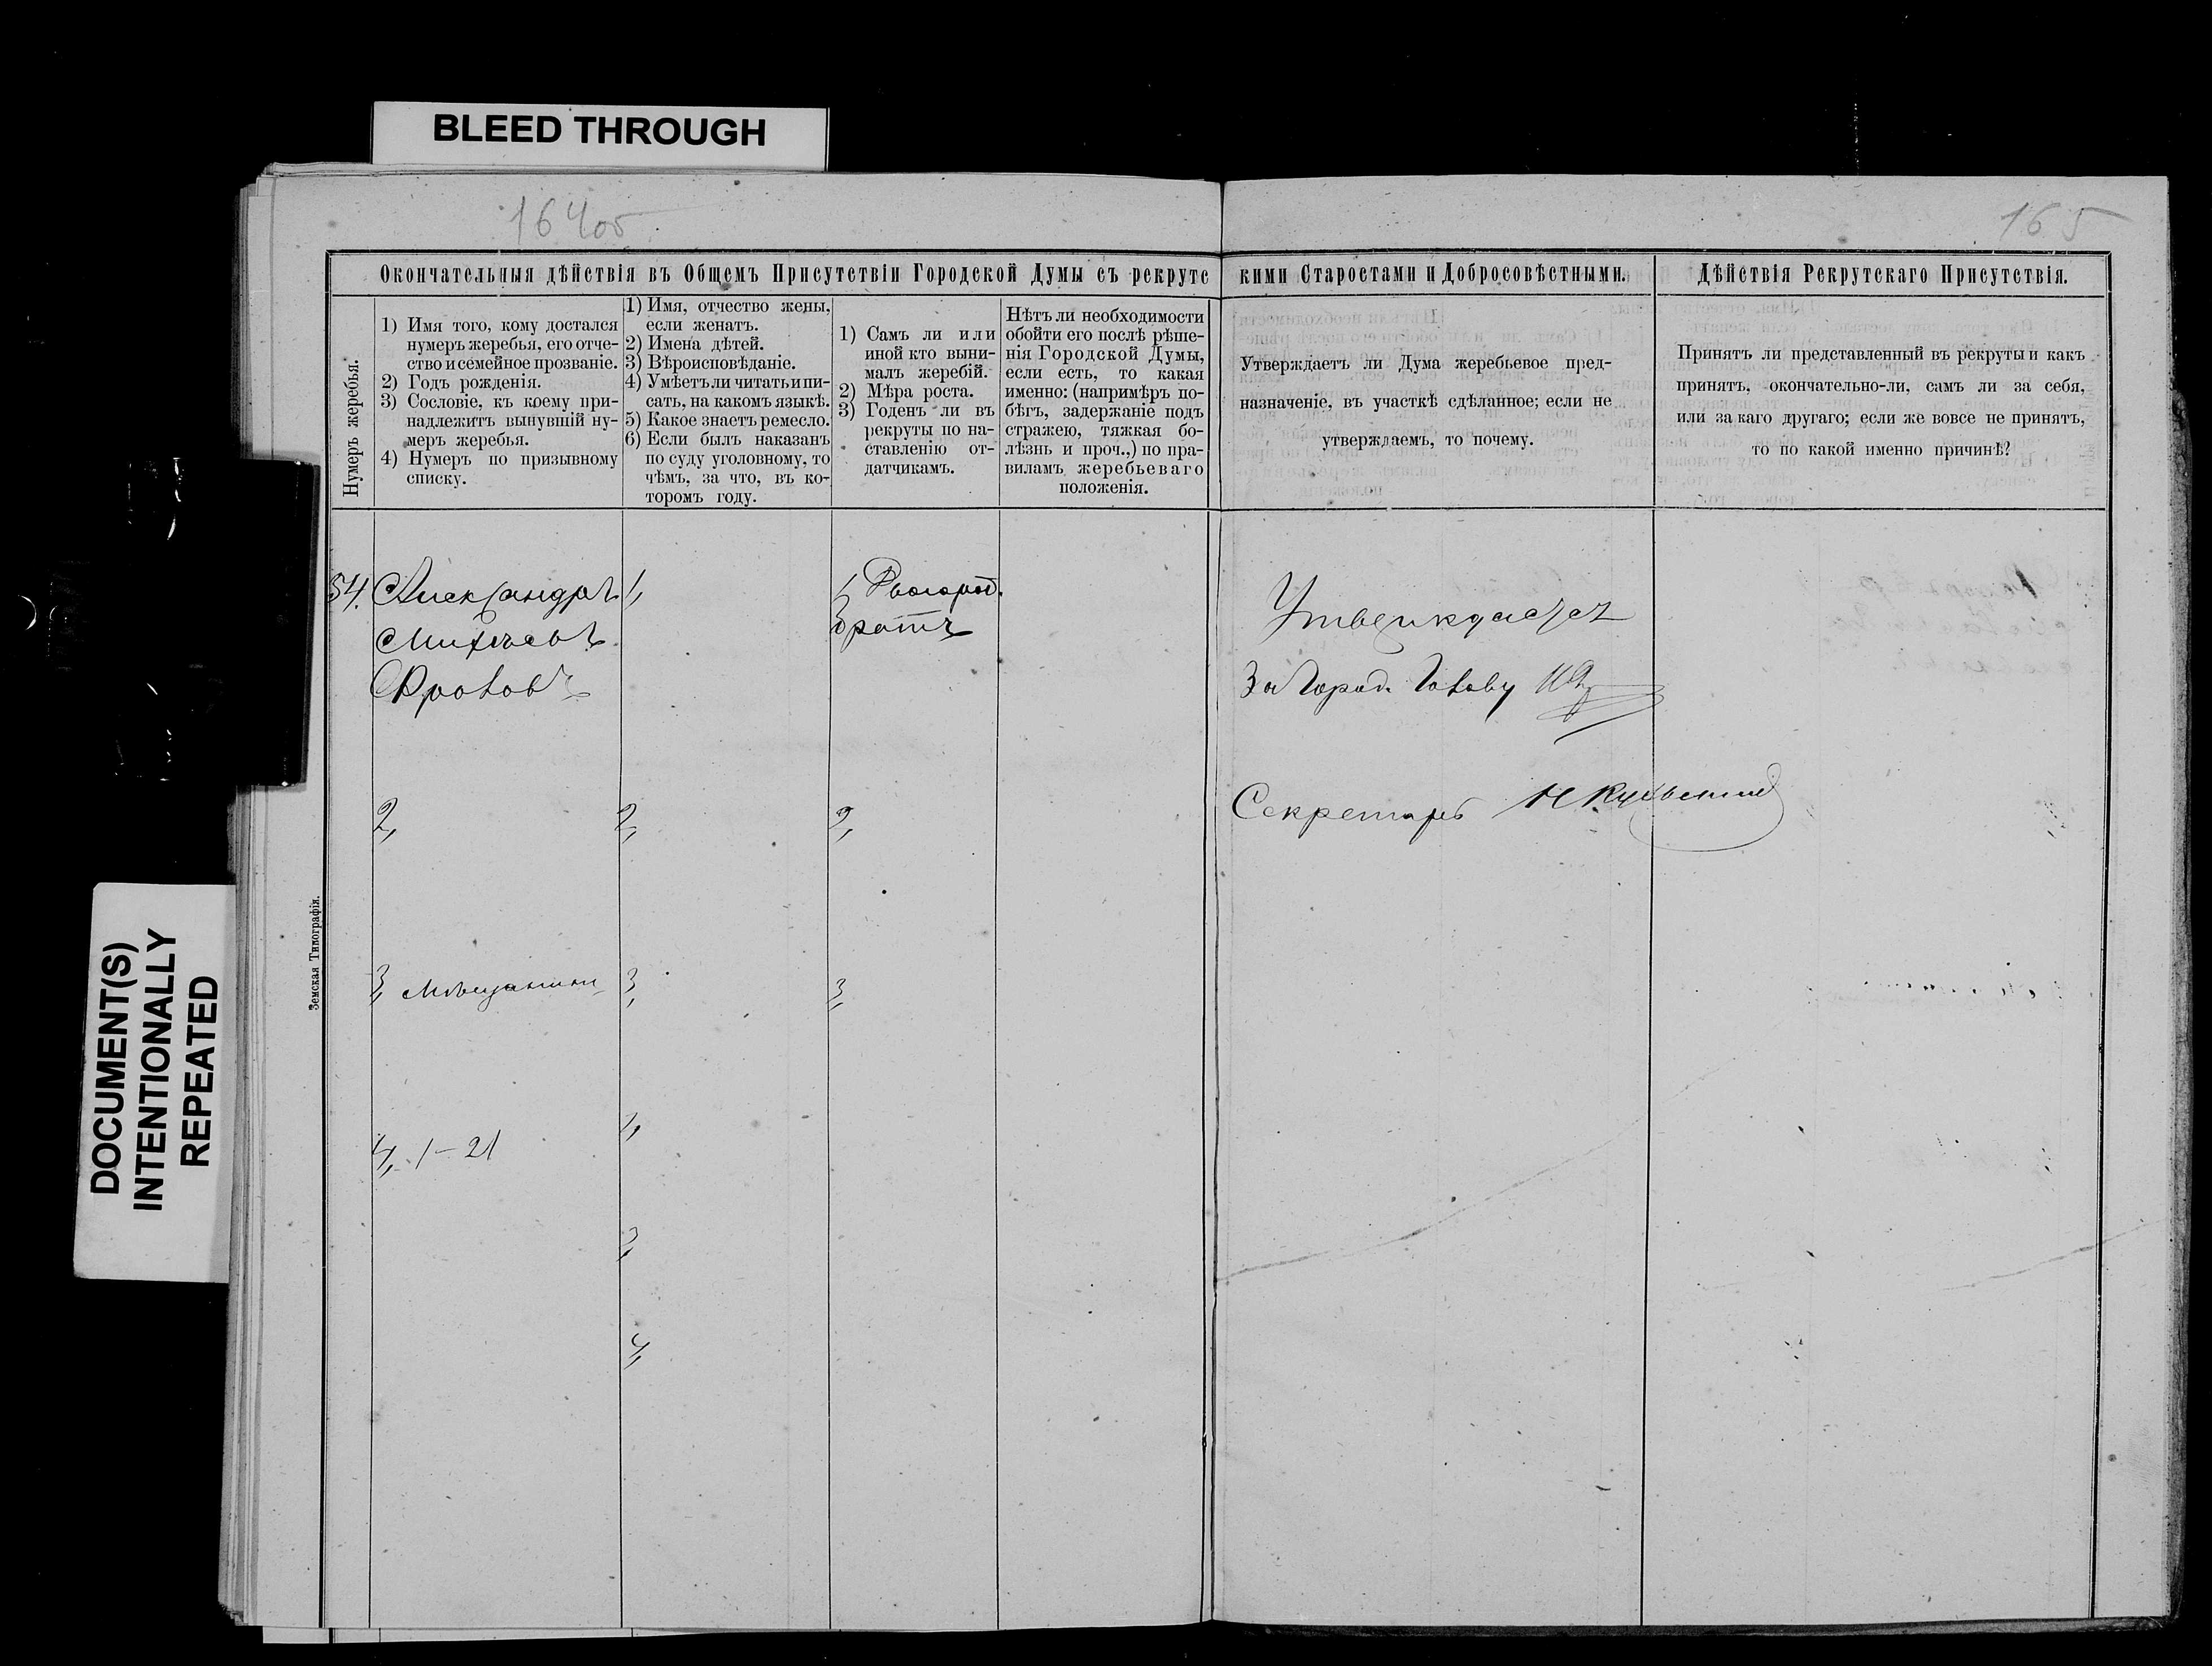 BLEED THROUGH
164об
165
Окончательныя дѣйствія въ Общемъ Присутствіи Городской Думы съ рекрутс
кими Старостами и Добросовѣстными.
Дѣйствія Рекрутскаго Присутствія.
Нумеръ жеребья.
1) Имя того, кому достался
нумеръ жеребья, его отче-
ство и семейное прозваніе.
2) Годъ рожденія.
3) Сословіе, къ коему при-
надлежитъ вынувшій ну-
меръ жеребья.
4) Нумеръ по призывному
списку.
1) Имя, отчество жены,
если женатъ.
2) Имена дѣтей.
3) Вѣроисповѣданіе.
4) Умѣетъ ли читать и пи-
сать, на какомъ языкѣ.
5) Какое знаетъ ремесло.
6) Если былъ наказанъ
по суду уголовному, то
чѣмъ, за что, въ ко-
торомъ году.
1) Самъ ли или
иной кто выни-
малъ жеребій.
2) Мѣра роста.
3) Годенъ ли въ
рекруты по на-
ставленію от-
датчикамъ.
Нѣтъ ли необходимости
обойти его послѣ рѣше-
нія Городской Думы,
если есть, то какая
именно: (напримѣръ по-
бѣгъ, задержаніе подъ
стражею, тяжкая бо-
лѣзнь и проч.,) по пра-
виламъ жеребьеваго
положенія.
Утверждаетъ ли Дума жеребьевое пред-
назначеніе, въ участкѣ сдѣланное; если не
утверждаемъ, то почему.
Принятъ ли представленный въ рекруты и какъ
принятъ, окончательно-ли, самъ ли за себя,
или за каго другаго; если же вовсе не принятъ,
то по какой именно причинѣ?
54. Александръ
Михѣевъ
Фроловъ
2,
3, Мѣщанинъ
4, 1-21
1,
2,
3,
4,
3,
4,
1, Двоюрод.
братъ
2,
3,
Утверждается
За Город. Голову
Секретарь
Земская Типографія.
DOCUMENT(S)
INTENTIONALLY
REPEATED